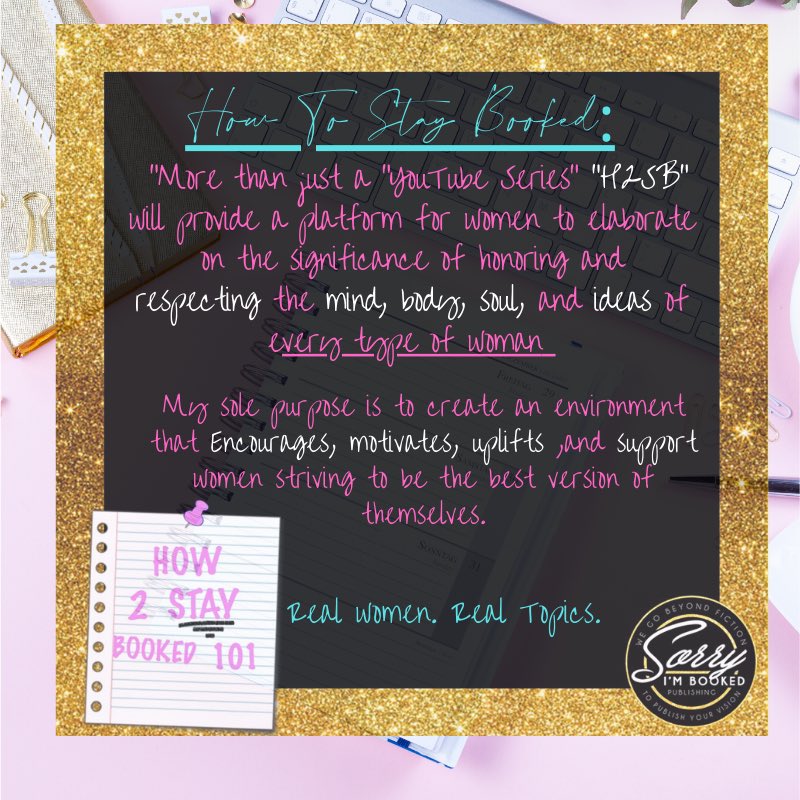 How To Stay Booked:
"More than just a "YouTube Series" "H2SB"
will provide a platform for women to elaborate
on the significance of honoring and
respecting the mind, body, soul, and ideas of
every type of woman
My sole purpose is to create an environment
that Encourages, motivates, uplifts ,and support
women striving to be the best version of
themselves.
Freitag 29
Sonntag 31
HOW
2 STAY
BOOKED 101
Real Women. Real Topics.
WE GO BEYOND FICTION
Sorry
I'M BOOKED
PUBLISHING
TO PUBLISH YOUR VISION